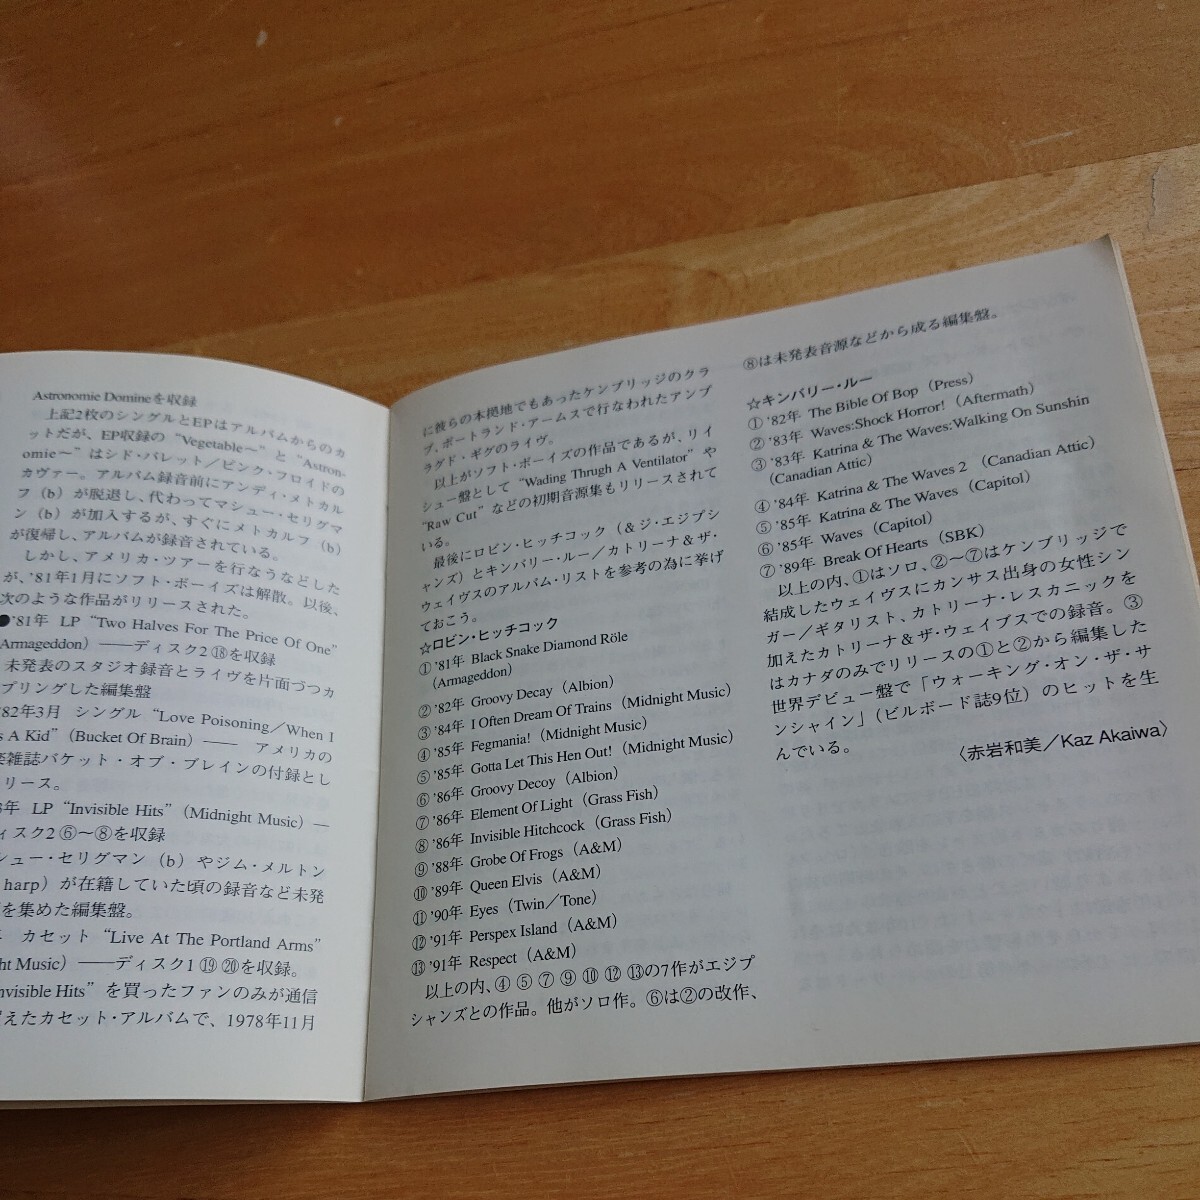 Astronomie Domineを収録
上記2枚のシングルとEPはアルバムからのカ
ットだが、EP収録の“Vegetable〜”と“Astron-
omie〜”はシド・バレット／ピンク・フロイドの
カヴァー。アルバム録音前にアンディ・メトカル
フ（b）が脱退し、代わってマシュー・セリグマ
ン（b）が加入するが、すぐにメトカルフ（b）
が復帰し、アルバムが録音されている。
しかし、アメリカ・ツアーを行なうなどした
が、’81年1月にソフト・ボーイズは解散。以後、
次のような作品がリリースされた。
●’81年 LP “Two Halves For The Price Of One”
Armageddon）——ディスク2 ⑱を収録
未発表のスタジオ録音とライヴを片面づつカ
プリングした編集盤
82年3月 シングル“Love Poisoning／When I
s A Kid”（Bucket Of Brain）—— アメリカの
楽雑誌バケット・オブ・ブレインの付録とし
リース。
年 LP “Invisible Hits”（Midnight Music）—
ィスク2 ⑥〜⑧を収録
シュー・セリグマン（b）やジム・メルトン
harp）が在籍していた頃の録音など未発
を集めた編集盤。
カセット“Live At The Portland Arms”
ht Music）——ディスク1 ⑲ ⑳を収録。
nvisible Hits”を買ったファンのみが通信
えたカセット・アルバムで、1978年11月
に彼らの本拠地でもあったケンブリッジのクラ
ブ、ポートランド・アームスで行なわれたアンプ
ラグド・ギグのライヴ。
以上がソフト・ボーイズの作品であるが、リイ
シュー盤として“Wading Thrugh A Ventilator”や
“Raw Cut”などの初期音源集もリリースされて
いる。
最後にロビン・ヒッチコック（＆ジ・エジプシ
ャンズ）とキンバリー・ルー／カトリーナ＆ザ・
ウェイヴスのアルバム・リストを参考の為に挙げ
ておこう。
☆ロビン・ヒッチコック
①’81年 Black Snake Diamond Röle
（Armageddon）
②’82年 Groovy Decay（Albion）
③’84年 I Often Dream Of Trains（Midnight Music）
④’85年 Fegmania!（Midnight Music）
⑤’85年 Gotta Let This Hen Out!（Midnight Music）
⑥’86年 Groovy Decoy（Albion）
⑦’86年 Element Of Light（Grass Fish）
⑧’86年 Invisible Hitchcock（Grass Fish）
⑨’88年 Grobe Of Frogs（A&M）
⑩’89年 Queen Elvis（A&M）
⑪’90年 Eyes（Twin／Tone）
⑫’91年 Perspex Island（A&M）
⑬’91年 Respect（A&M）
以上の内、④ ⑤ ⑦ ⑨ ⑩ ⑫ ⑬の7作がエジプ
シャンズとの作品。他がソロ作。⑥は②の改作、
⑧は未発表音源などから成る編集盤。
☆キンバリー・ルー
①’82年 The Bible Of Bop（Press）
②’83年 Waves:Shock Horror!（Aftermath）
③’83年 Katrina & The Waves:Walking On Sunshin
（Canadian Attic）
④’84年 Katrina & The Waves 2（Canadian Attic）
⑤’85年 Katrina & The Waves（Capitol）
⑥’85年 Waves（Capitol）
⑦’89年 Break Of Hearts（SBK）
以上の内、①はソロ、②〜⑦はケンブリッジで
結成したウェイヴスにカンサス出身の女性シン
ガー／ギタリスト、カトリーナ・レスカニックを
加えたカトリーナ＆ザ・ウェイブスでの録音。③
はカナダのみでリリースの①と②から編集した
世界デビュー盤で「ウォーキング・オン・ザ・サ
ンシャイン」（ビルボード誌9位）のヒットを生
んでいる。
〈赤岩和美／Kaz Akaiwa〉